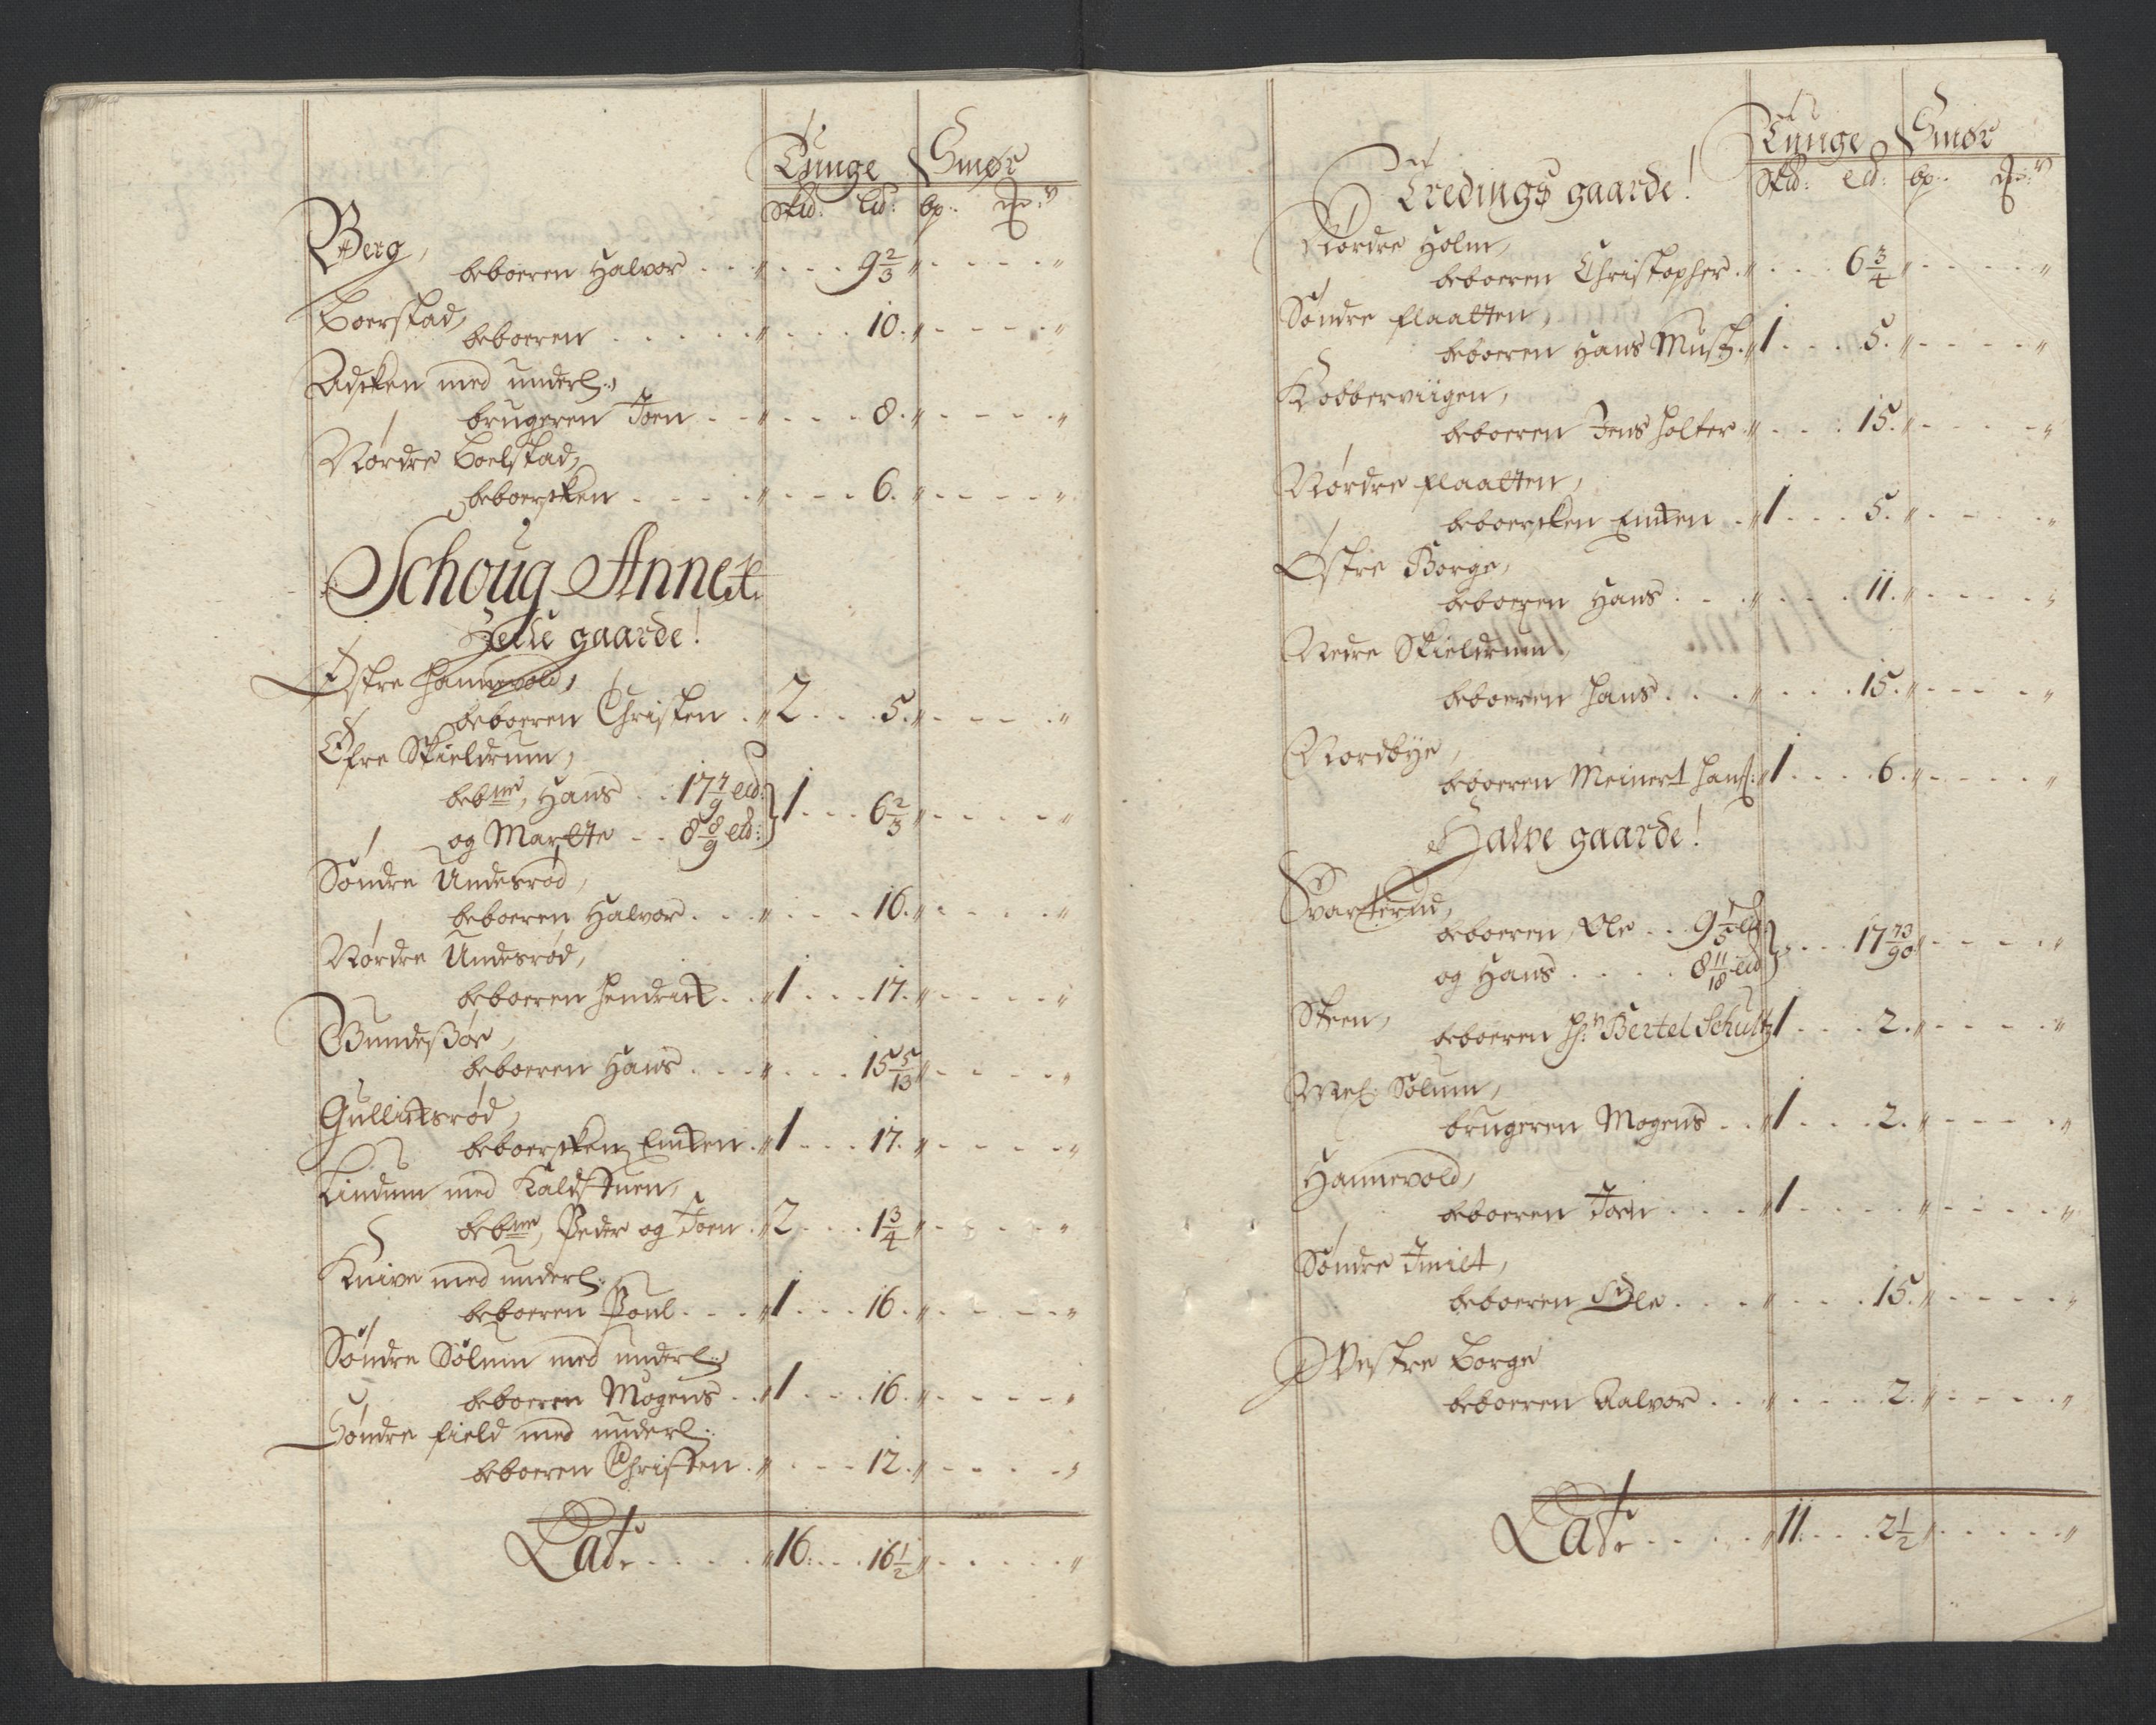 Tunge Smør
Skd: Ld: bp: mr:
Berg,
beboeren Halvor . . . " . . . 9 2/3 " . . . . "
Boerstad,
beboeren . . . . . " . . . 10. " . . . . "
med underl:
brugeren Joen . . " . . . 8. " . . . . "
Nordre Boelstad,
beboersken . . . . " . . . 6. " . . . . "
Schoug Annex.
Helle gaarde!
Østre Hannevold,
beboeren Christen . " 2 . . . 5. " . . . . "
Øfre Skieldrum,
bebne, Hans . . 17 7/9 Ld: } 1 . . . 6 2/3 " . . . . "
og Martte . . 8 8/9 Ld:
Søndre Undesrød,
beboeren Halvor . . . " . . . 16. " . . . . "
Nordre Undesrød,
beboeren Hendrick . . " 1 . . . 17. " . . . . "
Gundesør,
beboeren Hans . . . " . . . 15 5/13 " . . . . "
Gullicksrød,
beboersken Encken . " 1 . . . 17. " . . . . "
Lindum med Kaldstuen,
bebne, Peder og Joen . " 2 . . . 1 3/4 " . . . . "
Knive med underl:
beboeren Poul . . . " 1 . . . 16. " . . . . "
Søndre Solum med underl:
beboeren Mogens . . " 1 . . . 16. " . . . . "
Søndre field med underl:
beboeren Christen . " . . . 12. " . . . . "
Latr . . . . . " 16: . . 16 1/2 " . . . . . "
Tunge Smør
Skd: Ld: bp: mr:
Ered­ings gaarde!
Nordre Holm,
beboeren Christopher . " . . . 6 3/4 " . . . . "
Søndre flaatten,
beboeren Hans Musz. " 1 . . . 5. " . . . . "
Kobberviigen,
beboeren Jens Holter . " . . . 15. " . . . . "
Nørdre flaatten,
beboersken Encken . " 1 . . . 5. " . . . . "
Østre Borge,
beboeren Hans . . . " . . . 11. " . . . . "
Nedre Skieldrum,
beboeren Hans . . . " . . . 15. " . . . . "
Nordbye,
beboeren Meinert Hanß: " 1 . . . 6. " . . . . "
Halve gaarde!
Svarterud,
beboeren, Ole . . 9 1/5 Ld } . . . 17 73/90 " . . . . "
og Hans . . . . 8 11/18 Ld
Steen,
beboeren Hr. Bertel Schultz 1 . . . 2. " . . . . "
Solum,
brugeren Mogens . . " 1 . . . 2. " . . . . "
Hannevold,
beboeren Joen . . . . " 1 . . . . . " . . . . "
Søndre Imilt,
beboeren Ole . . . . " . . . 15. " . . . . "
Westre Borge
beboeren Halvor . . . " . . . 2. " . . . . "
Latr . . . . . " 11. . . . 2 1/2 " . . . . . "